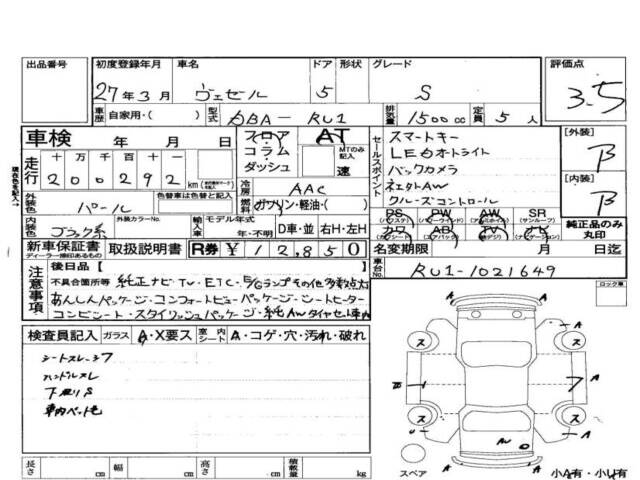 出品番号 初度登録年月 車名 ドア 形状 グレード 評価点
27年3月 ヴェゼル 5 S 3.5
車歴 自家用・( ) 型式 DBA-RU1 排気量 1500 cc 定員 5 人
車検 年 月 日
フロア コラム ダッシュ
AT
MTのみ記入
速
セールスポイント
スマートキー
LEDオートライト
バックカメラ
クルーズコントロール
[外装]
B
[内装]
B
走行 十万千百十
200292 km
冷房 AAC
ガソリン・軽油・( )
外装色 パール 色替車は色替と記入
内装色 ブラック系 外装カラーNo. 輸入車 モデル年式 年・不明 D車・並 右H・左H
PS PW AW SR
(パワステ) (パワーウインド) (アルミホイル) (サンルーフ)
カワ AB TV ナビ
(カワシート) (エアバッグ) (ナビゲーション)
純正品のみ丸印
新車保証書 取扱説明書 R券 ¥12,850
ディーラー捺印あるもの
名変期限 月 日迄
車台No. RU1-1021649
注意事項
後日品[ ]
不具合箇所等 純正ナビ・TV・ETC・E/Gランプその他多数点灯
あんしんパッケージ・コンフォートビューパッケージ・シートヒーター
コンビシート・スタイリッシュパッケージ・純AWタイヤセット車内
ロック車
検査員記入 ガラス A・X要ス 室内シート A・コゲ・穴・汚れ・破れ
シートスレ・シワ
ハンドルスレ
下廻りS
A A
ス ス
A A
ス ス
AW
A A
スペア
長さ cm 幅 cm 高さ cm 積載量 kg
小A有・小U有